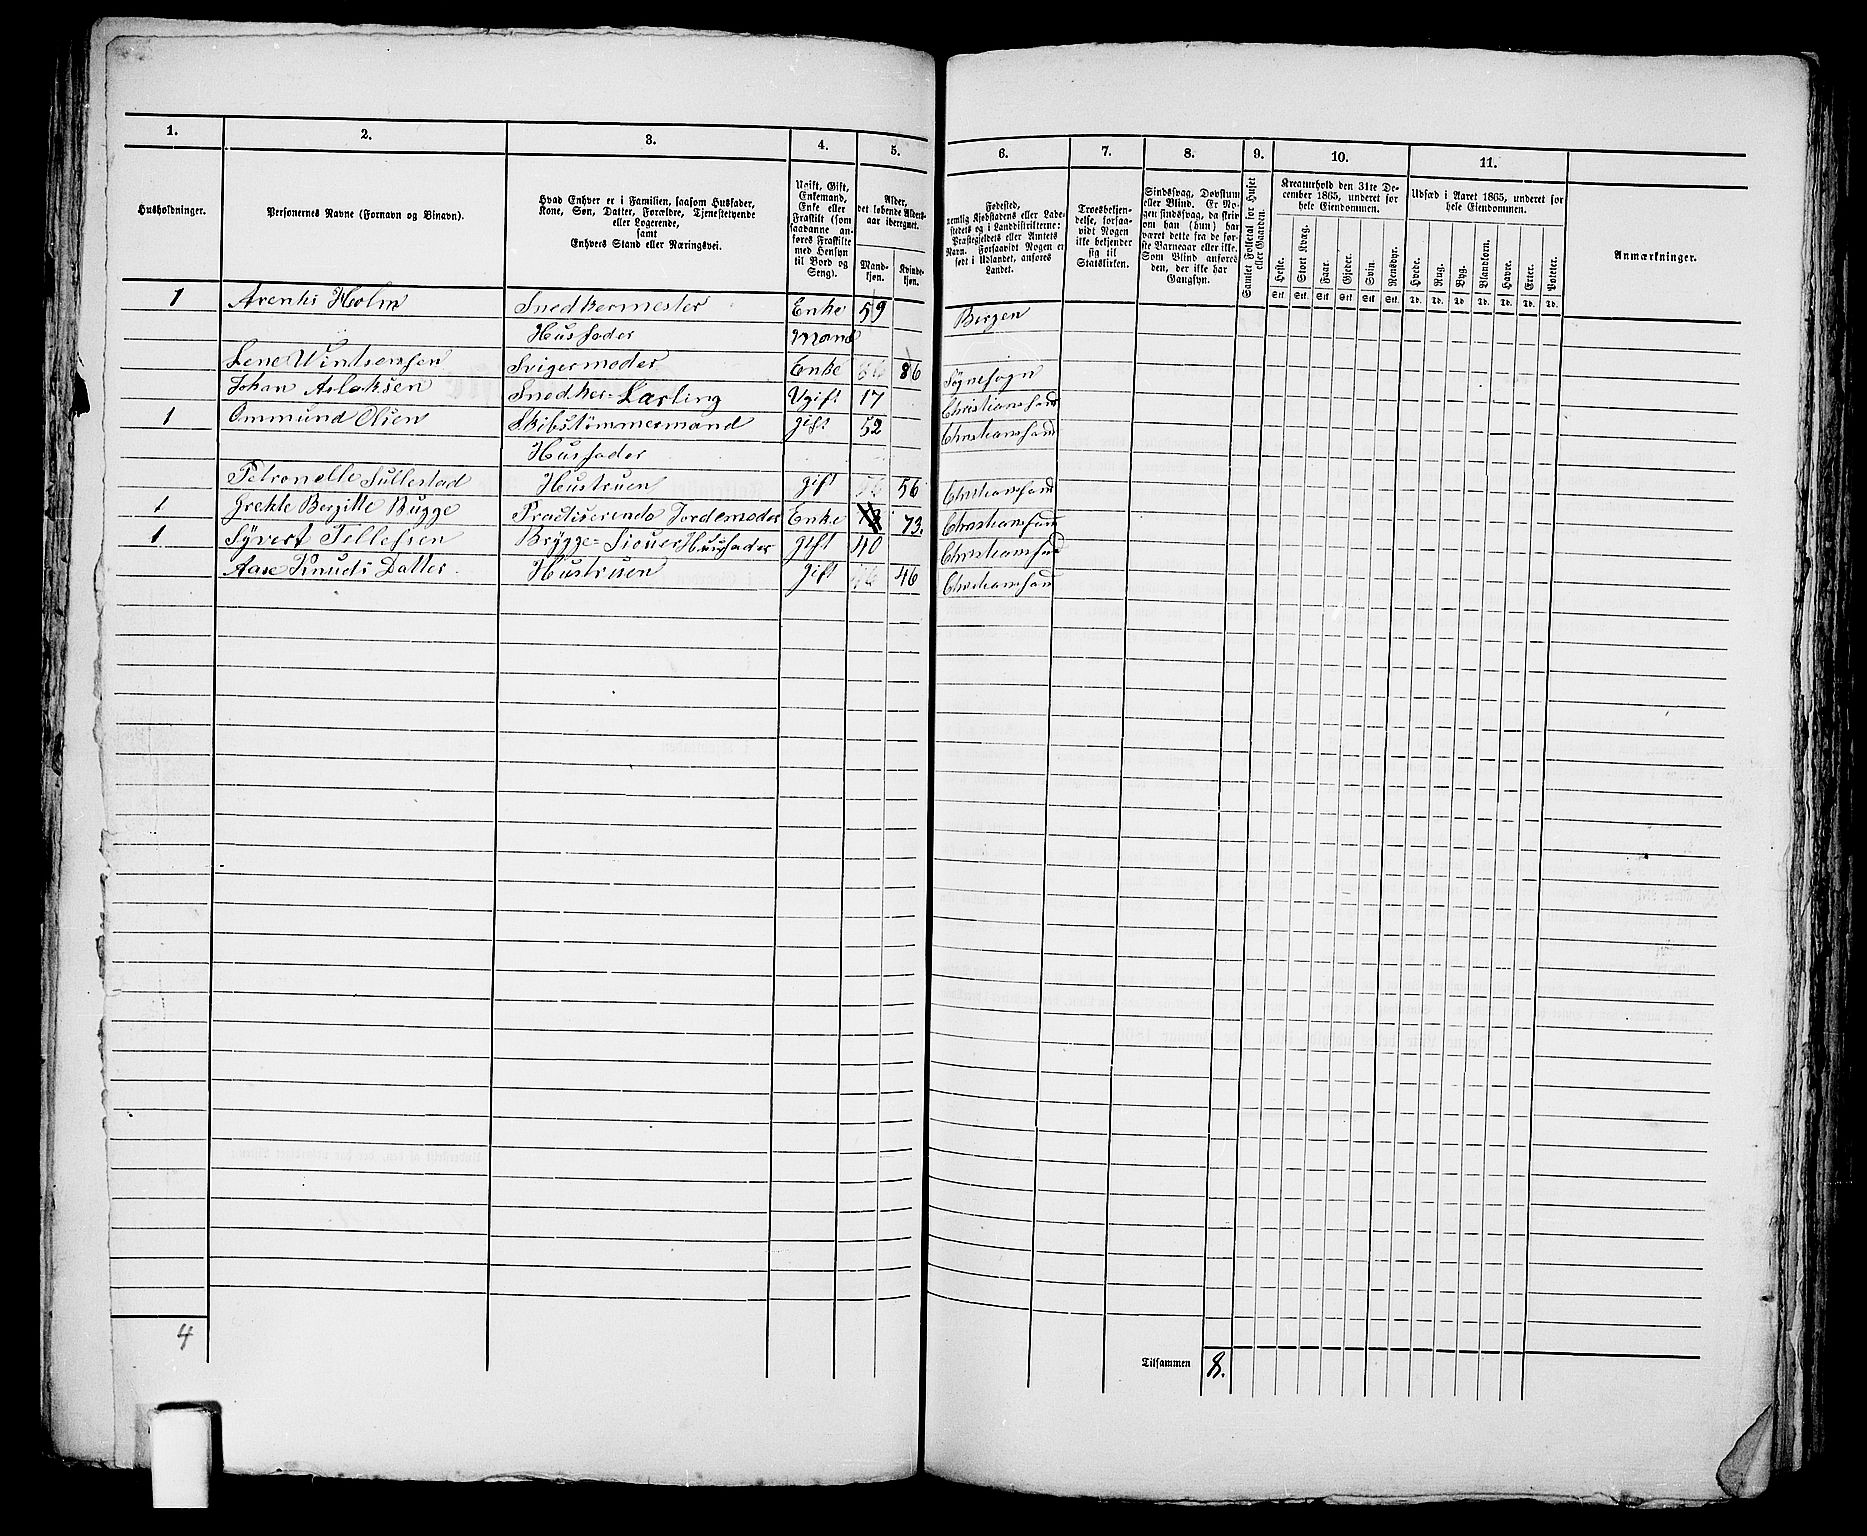 1. 2. 3. 4. 5. 6. 7. 8. 9. 10. 11.
Husholdninger.
Personernes Navne (Fornavn og Binavn).
Hvad Enhver er i Familien, saasom Husfader,
Kone, Søn, Datter, Forældre, Tjenestetyende
eller Logerende,
samt
Enhvers Stand eller Næringsvei.
Ugift, Gift,
Enkemand,
Enke eller
Fraskilt (som
saadanne an-
føres Fraskilte
med Hensyn
til Bord og
Seng).
Alder,
det løbende Alders-
aar iberegnet.
Mand-
kjøn.
Kvinde-
kjøn.
Fødested,
nemlig Kjøbstadens eller Lade-
stedets og i Landdistrikterne:
Præstegjeldets eller Amtets
Navn. Forsaavidt Nogen er
født i Udlandet, anføres
Landet.
Troesbekjen-
delse, forsaa-
vidt Nogen
ikke bekjender
sig til
Statskirken.
Sindssvag, Døvstum
eller Blind. Er No-
gen sindssvag, da skriv
om han (hun) har
været dette fra de før-
ste Barneaar eller ikke.
Som Blind anføres
den, der ikke har
Gangsyn.
Samlet Folketal for Huset
eller Gaarden.
Kreaturhold den 31te De-
cember 1865, underet for
hele Eiendommen.
Heste. Stort Kvæg. Faar. Gjeder. Svin. Rensdyr.
Stk. Stk. Stk. Stk. Stk. Stk.
Udsæd i Aaret 1865, underet for
hele Eiendommen.
Hvede. Rug. Byg. Blandkorn. Havre. Erter. Poteter.
Td. Td. Td. Td. Td. Td. Td.
Anmærkninger.
1 Arentz Holm Snedkermester Enke 59 Bergen
Husfader Mand
Lene Svigermoder Enke 86 Søgnesogn
Johan Aslaksen Snedker-Lærling Ugift 17 Christianssand
1 Ommund Olsen Skibstimmermand gift 52 Christianssand
Husfader
Petronelle Sullestad Hustruen gift 56 Christianssand
1 Grethe Bergitte Bugge Practiserende Jordemoder Enke 73. Christianssand
1 Syvert Tellefsen Brygge-Siouer Husfader gift 40 Christianssand
Aase Knuds Datter Hustruen gift 46 Christianssand
4
Tilsammen 8.